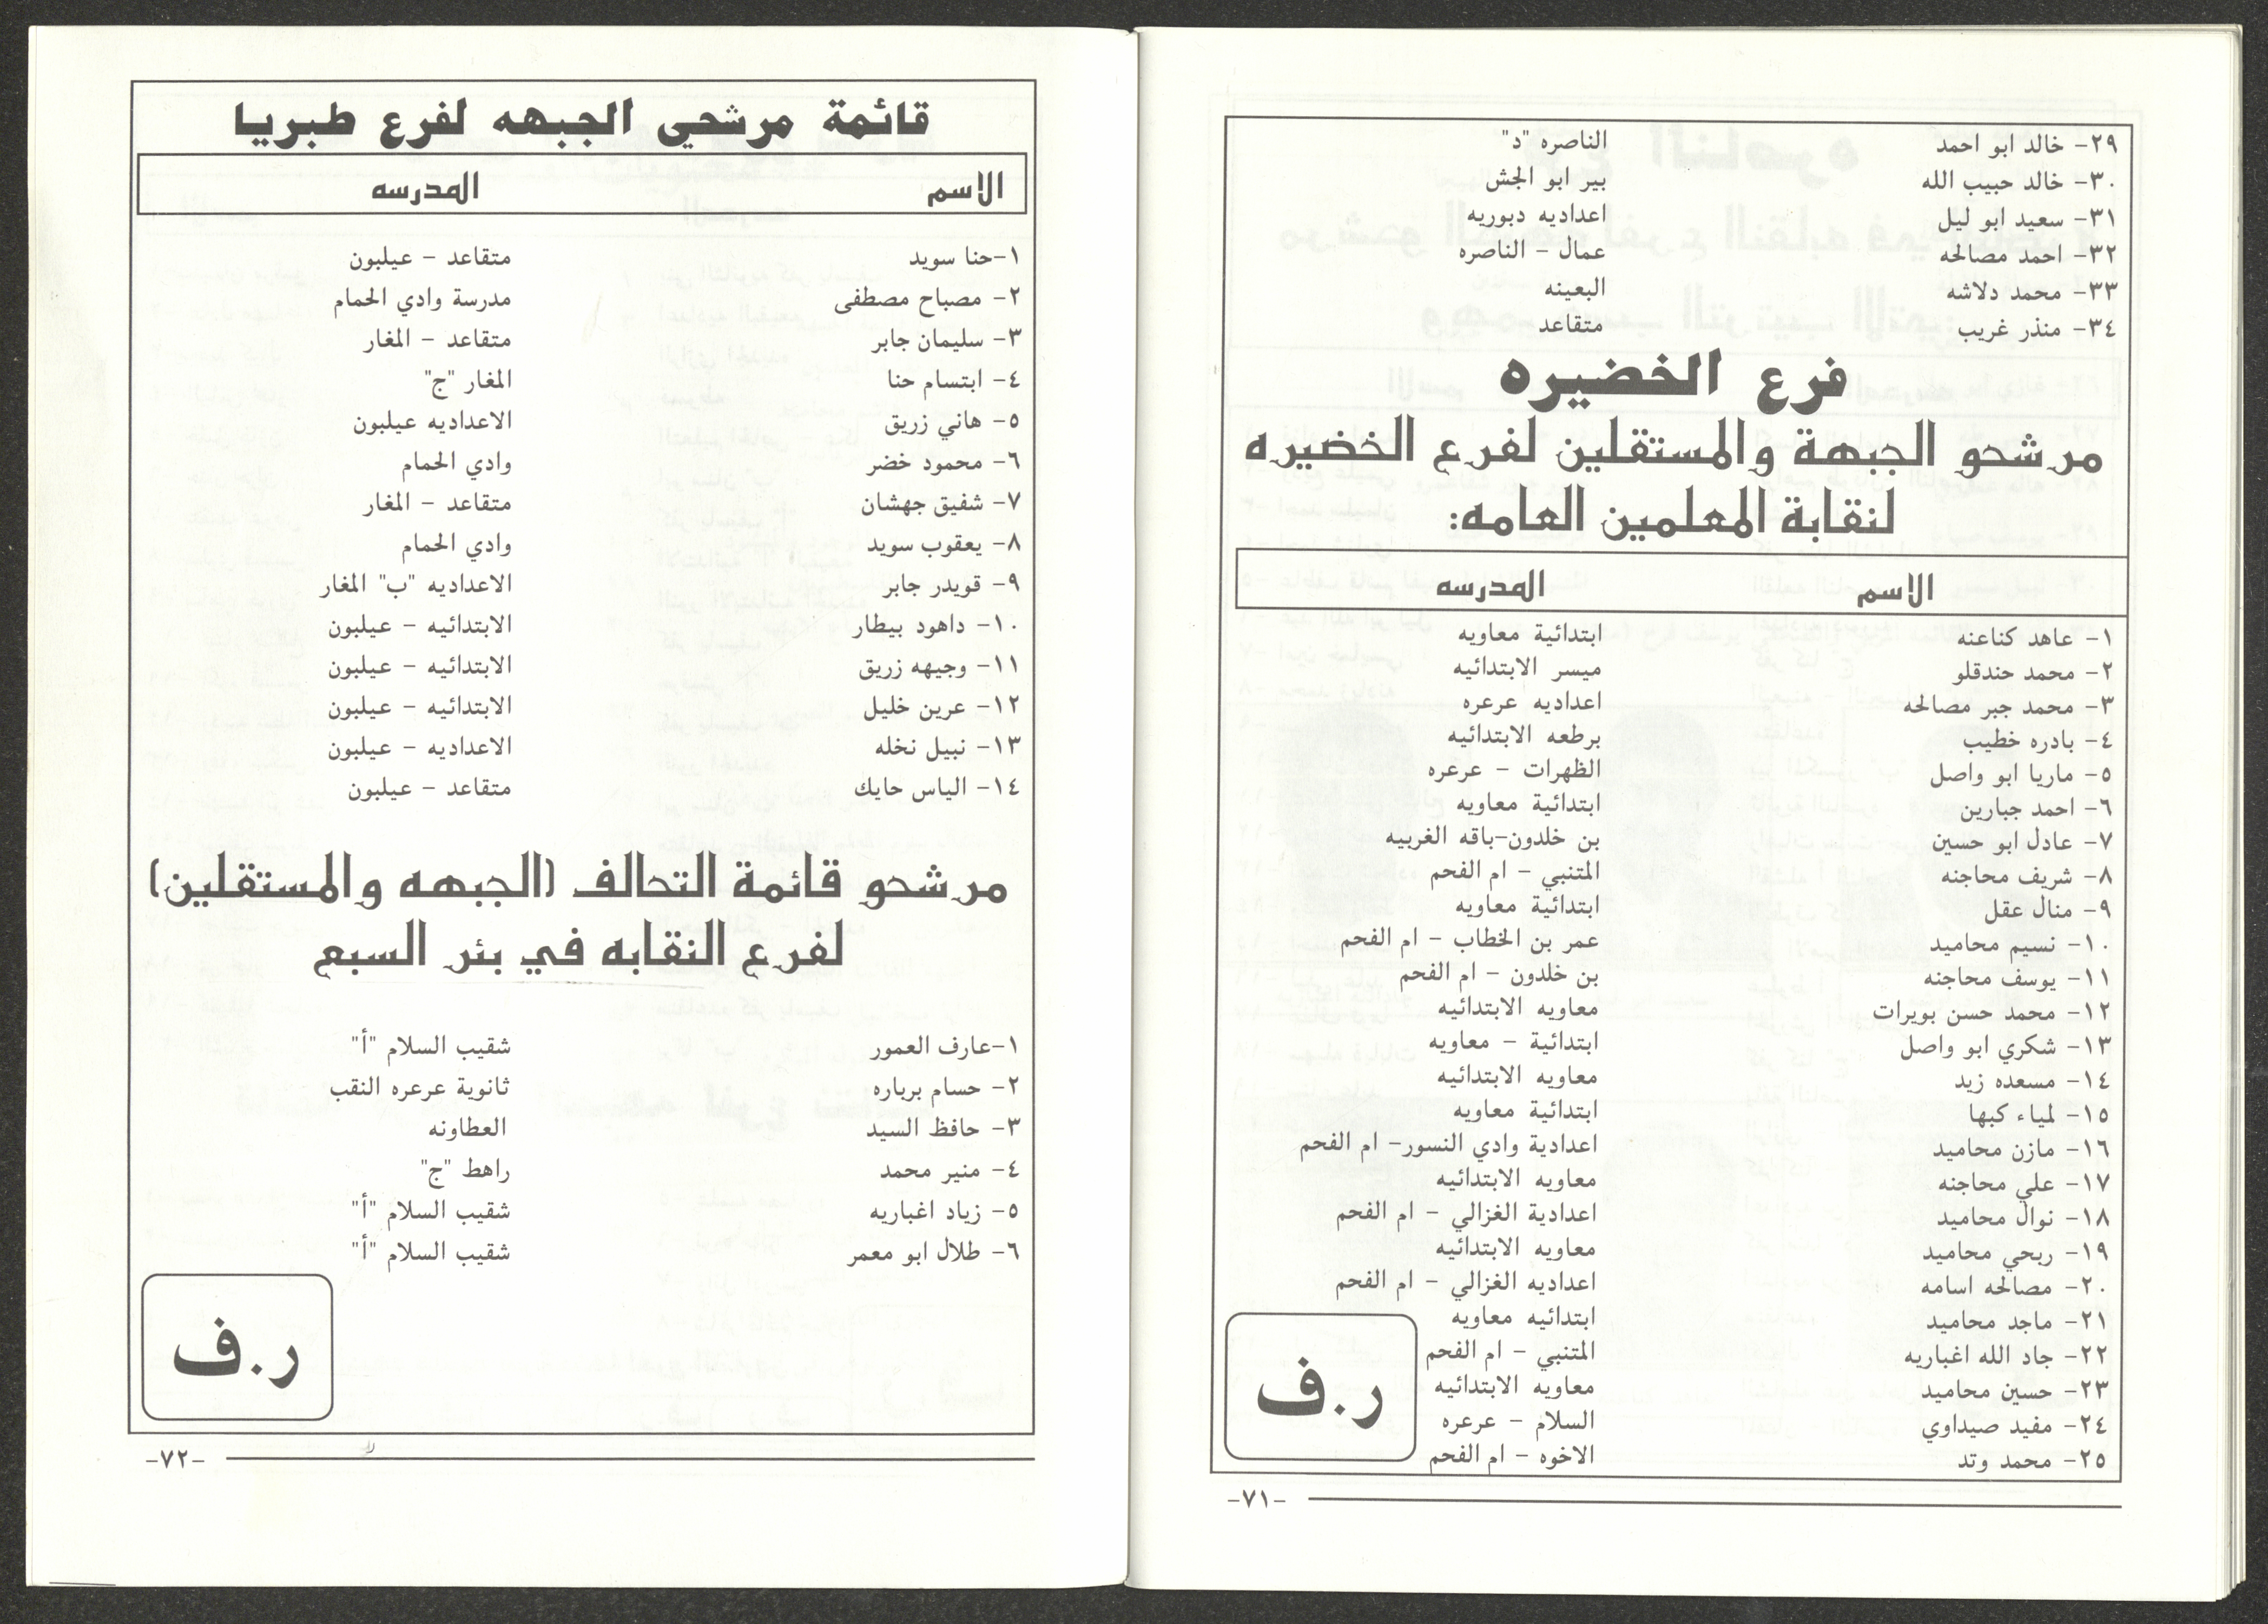 ٢٩- خالد ابو احمد الناصره "د"
٣٠- خالد حبيب الله بير ابو الجش
٣١- سعيد ابو ليل اعداديه دبوريه
٣٢- احمد مصالحه عمال - الناصره
٣٣- محمد دلاشه البعينه
٣٤- منذر غريب متقاعد
فرع الخضيره
مرشحو الجبهة والمستقلين لفرع الخضيره
لنقابة المعلمين العامه:
الاسم المدرسه
١- عاهد كناعنه ابتدائية معاويه
٢- محمد حندقلو ميسر الابتدائيه
٣- محمد جبر مصالحه اعداديه عرعره
٤- بادره خطيب برطعه الابتدائيه
٥- ماريا ابو واصل الظهرات - عرعره
٦- احمد جبارين ابتدائية معاويه
٧- عادل ابو حسين بن خلدون-باقه الغربيه
٨- شريف محاجنه المتنبي - ام الفحم
٩- منال عقل ابتدائية معاويه
١٠- نسيم محاميد عمر بن الخطاب - ام الفحم
١١- يوسف محاجنه بن خلدون - ام الفحم
١٢- محمد حسن بويرات معاويه الابتدائيه
١٣- شكري ابو واصل ابتدائية - معاويه
١٤- مسعده زيد معاويه الابتدائيه
١٥- لمياء كبها ابتدائية معاويه
١٦- مازن محاميد اعدادية وادي النسور- ام الفحم
١٧- علي محاجنه معاويه الابتدائيه
١٨- نوال محاميد اعدادية الغزالي - ام الفحم
١٩- ربحي محاميد معاويه الابتدائيه
٢٠- مصالحه اسامه اعداديه الغزالي - ام الفحم
٢١- ماجد محاميد ابتدائيه معاويه
٢٢- جاد الله اغباريه المتنبي - ام الفحم
٢٣- حسين محاميد معاويه الابتدائيه
٢٤- مفيد صيداوي السلام - عرعره
٢٥- محمد وتد الاخوه - ام الفحم
ر.ف
-٧١-
قائمة مرشحي الجبهه لفرع طبريا
الاسم المدرسه
١-حنا سويد متقاعد - عيلبون
٢- مصباح مصطفى مدرسة وادي الحمام
٣- سليمان جابر متقاعد - المغار
٤- ابتسام حنا المغار "ج"
٥- هاني زريق الاعداديه عيلبون
٦- محمود خضر وادي الحمام
٧- شفيق جهشان متقاعد - المغار
٨- يعقوب سويد وادي الحمام
٩- قويدر جابر الاعداديه "ب" المغار
١٠- داهود بيطار الابتدائيه - عيلبون
١١- وجيهه زريق الابتدائيه - عيلبون
١٢- عرين خليل الابتدائيه - عيلبون
١٣- نبيل نخله الاعداديه - عيلبون
١٤- الياس حايك متقاعد - عيلبون
مرشحو قائمة التحالف (الجبهه والمستقلين)
لفرع النقابه في بئر السبع
١-عارف العمور شقيب السلام "أ"
٢- حسام برباره ثانوية عرعره النقب
٣- حافظ السيد العطاونه
٤- منير محمد راهط "ج"
٥- زياد اغباريه شقيب السلام "أ"
٦- طلال ابو معمر شقيب السلام "أ"
ر.ف
-٧٢-